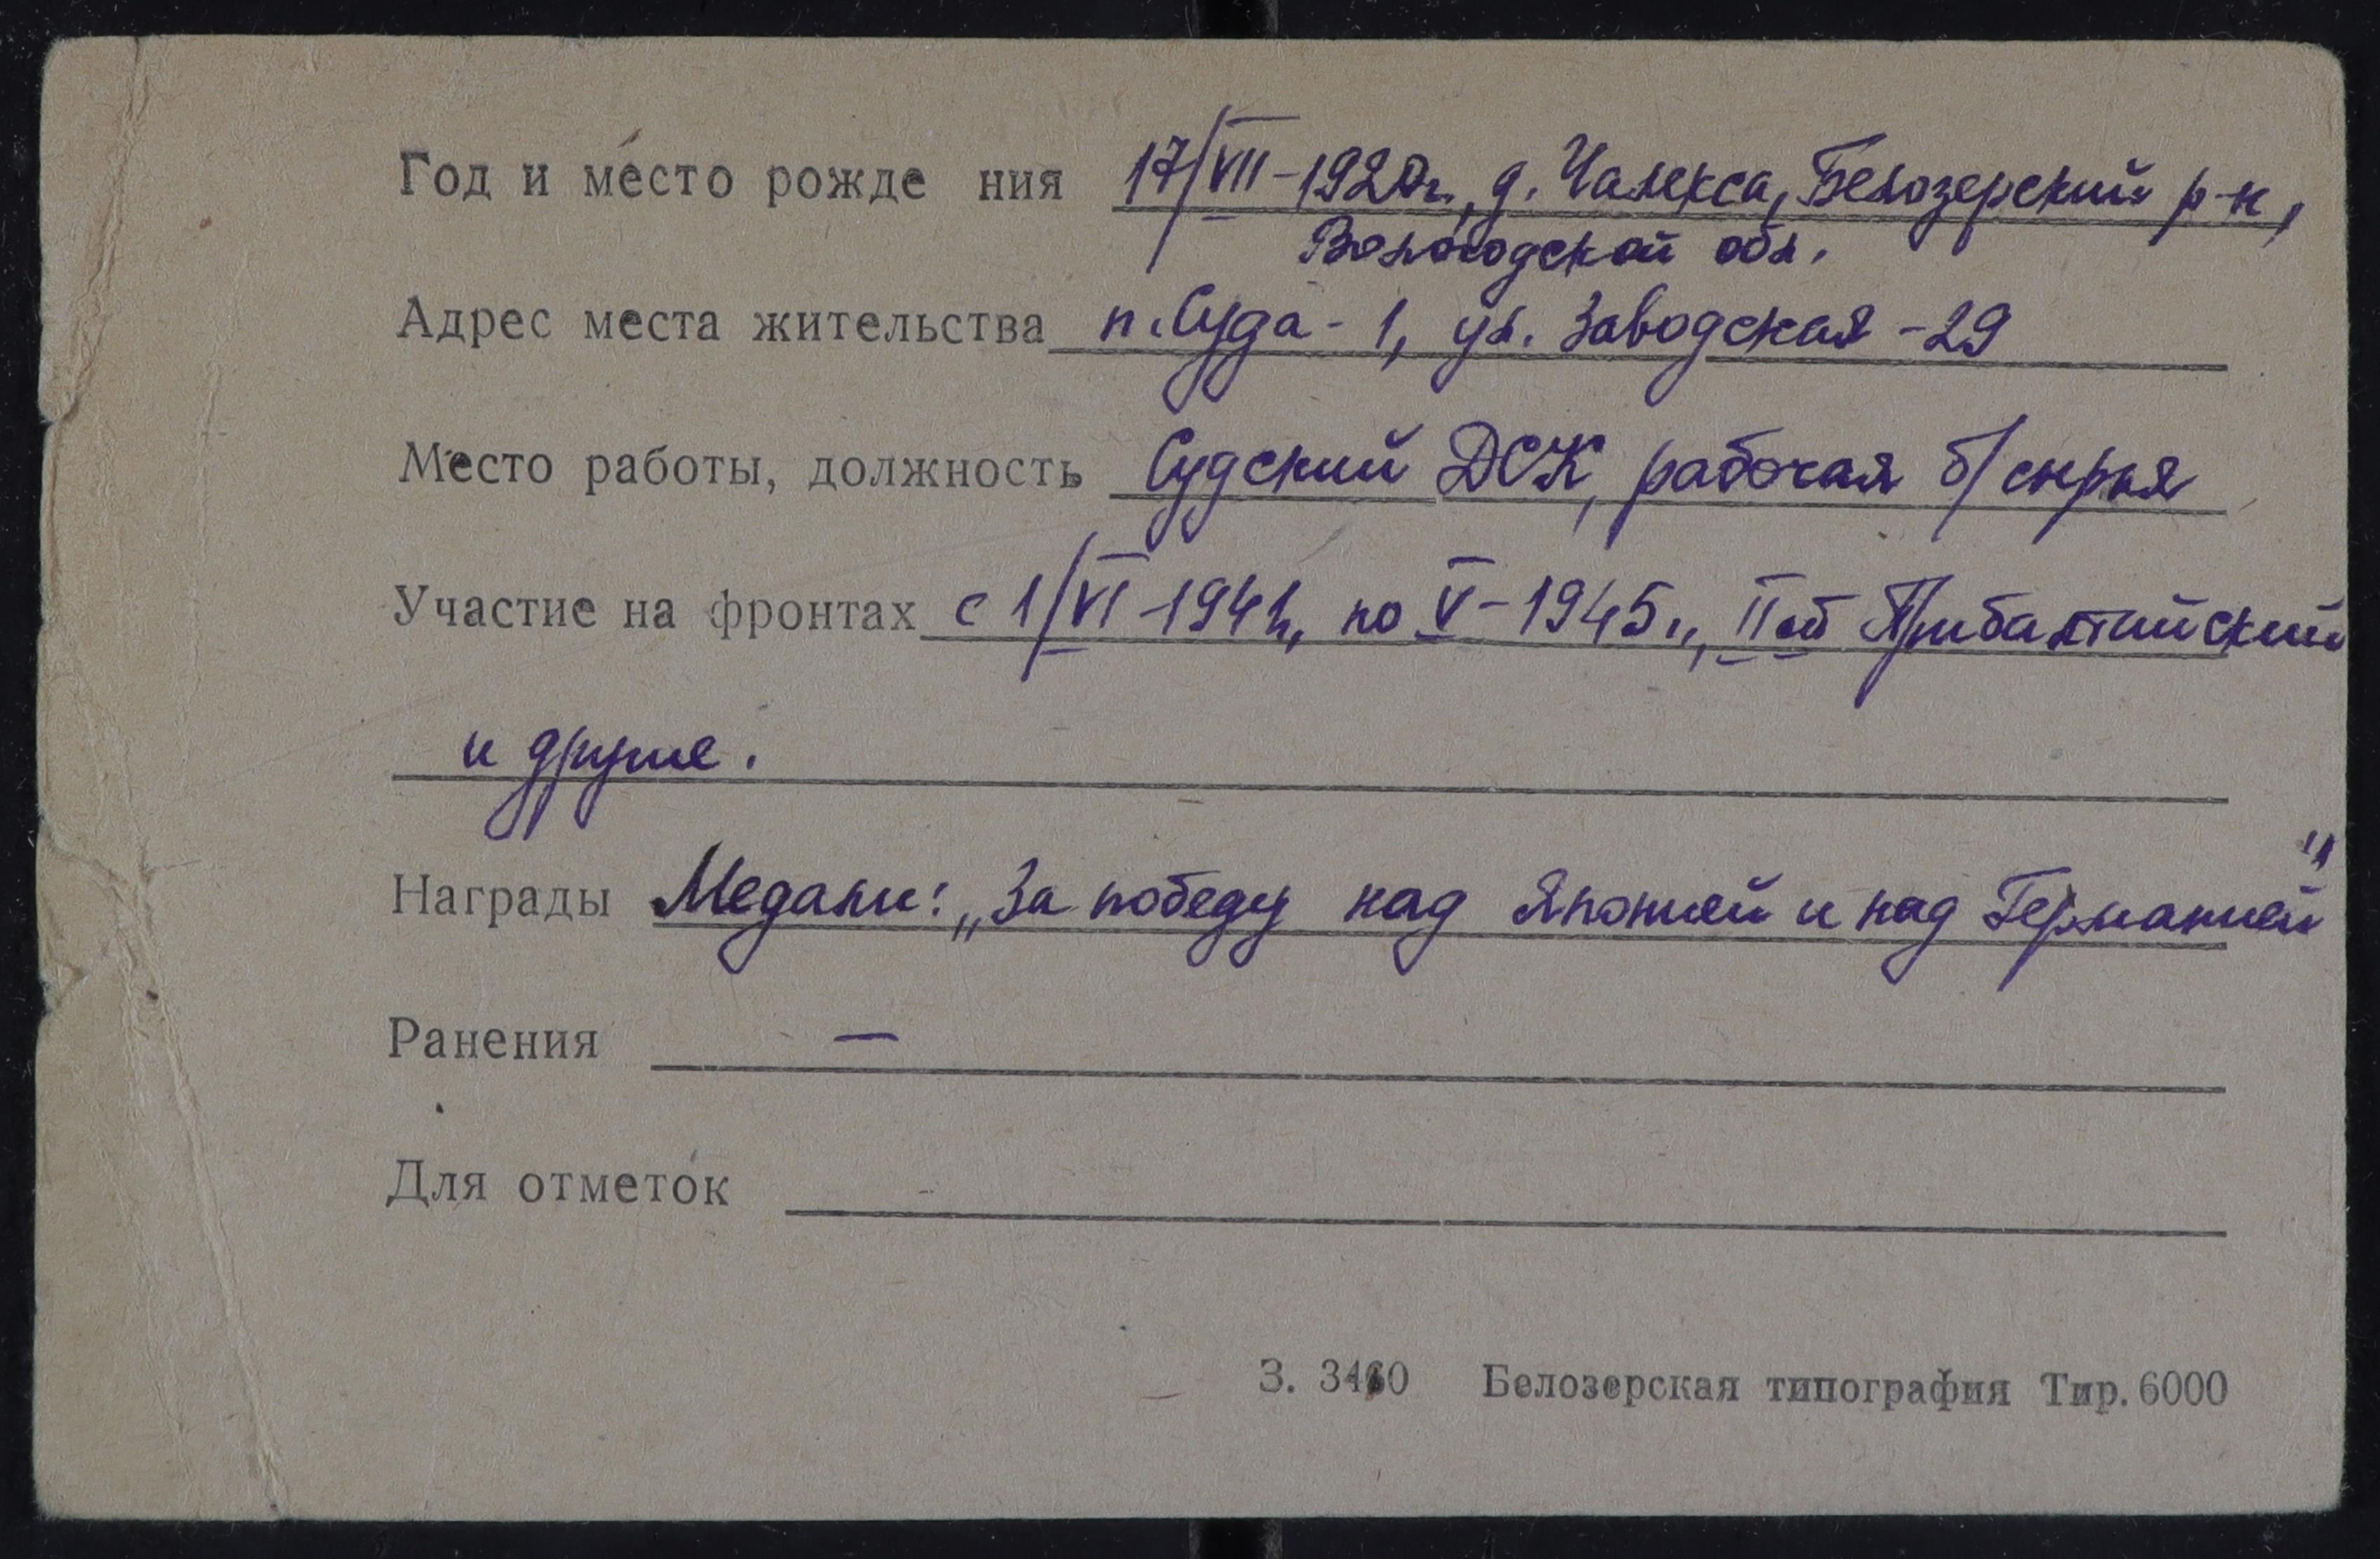 Год и место рожде ния 17/VII-1920г., д. Чалекса, Белозерский р-н,
Вологодской обл.
Адрес места жительства п. Суда-1, ул. Заводская-29
Место работы, должность Судский ДСК, рабочая б/сырья
Участие на фронтах с 1/VI-1941, по V-1945г., II ой Прибалтийский
и другие.
Награды Медали: „За победу над Японией и над Германией"
Ранения —
Для отметок
З. 3460 Белозерская типография Тир. 6000